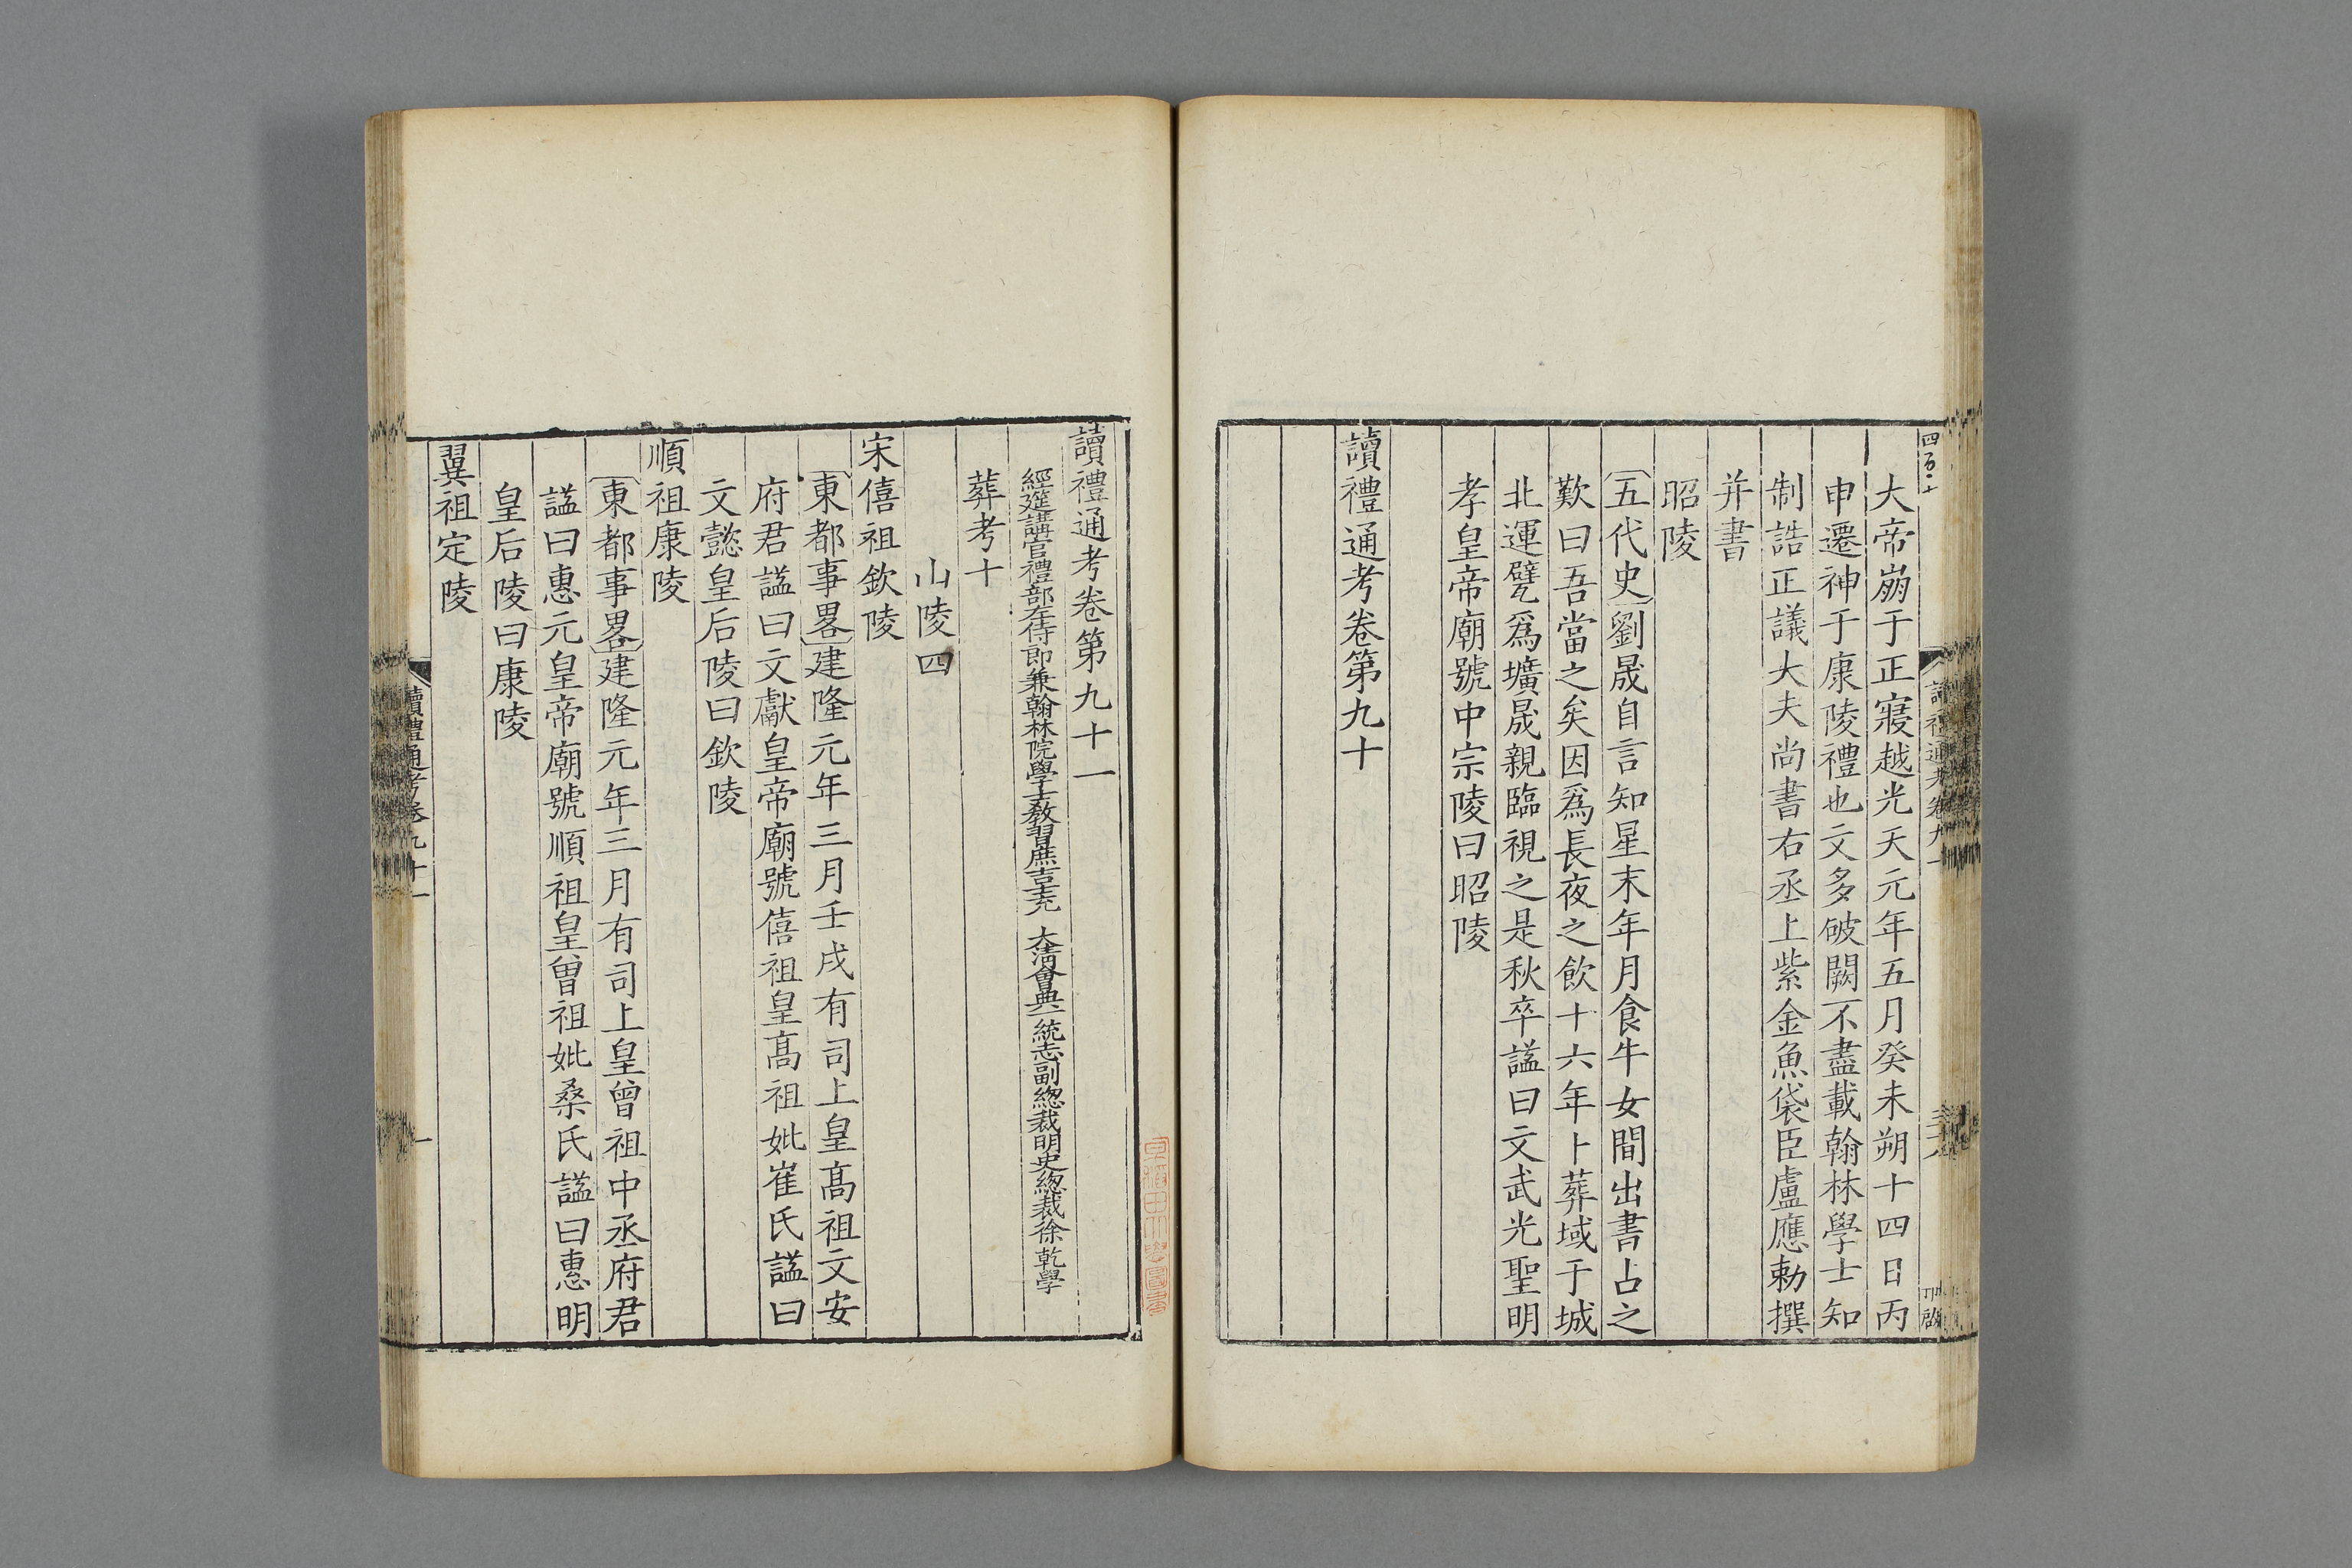 四百二十
大帝崩于正寢越光天元年五月癸未朔十四日丙
申遷神于康陵禮也文多破闕不盡載翰林學士知
制誥正議大夫尚書右丞上紫金魚袋臣盧應勅撰
并書
昭陵
五代史劉晟自言知星末年月食牛女間出書占之
歎曰吾當之矣因爲長夜之飲十六年卜葬域于城
北運甓爲壙晟親臨視之是秋卒謚曰文武光聖明
孝皇帝廟號中宗陵曰昭陵
讀禮通考卷第九十
讀禮通考卷第九十一
經筵講官禮部左侍郎兼翰林院學士教習庶吉士充 大清會典一統志副緫裁明史緫裁徐乾學
葬考十
山陵四
宋僖祖欽陵
東都事畧建隆元年三月壬戌有司上皇髙祖文安
府君謚曰文獻皇帝廟號僖祖皇髙祖妣崔氏謚曰
文懿皇后陵曰欽陵
順祖康陵
東都事畧建隆元年三月有司上皇曾祖中丞府君
謚曰惠元皇帝廟號順祖皇曾祖妣桑氏謚曰惠明
皇后陵曰康陵
翼祖定陵
讀禮通考卷九十一
一
早稲田大學圖書